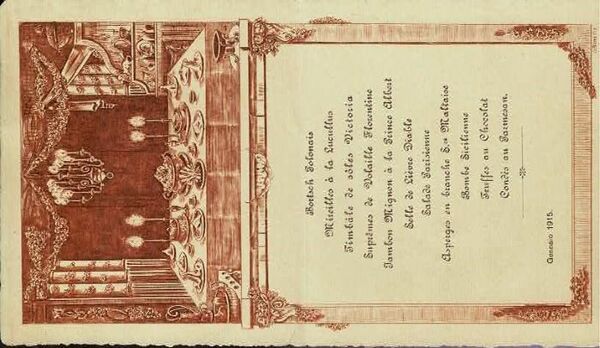 Bortsch Polonais
Mireilles à la Lucullus
Timbále de sôles Victoria
Suprêmes de Volaille Florentine
Jambon Mignon à la Prince Albert
Selle de Lièvre Diable
Salade Parisienne
Asperges en branche Sce Maltaise
Bombe Sicilienne
Truffes au Chocolat
Condés au Parmesan.
Gennaio 1915.